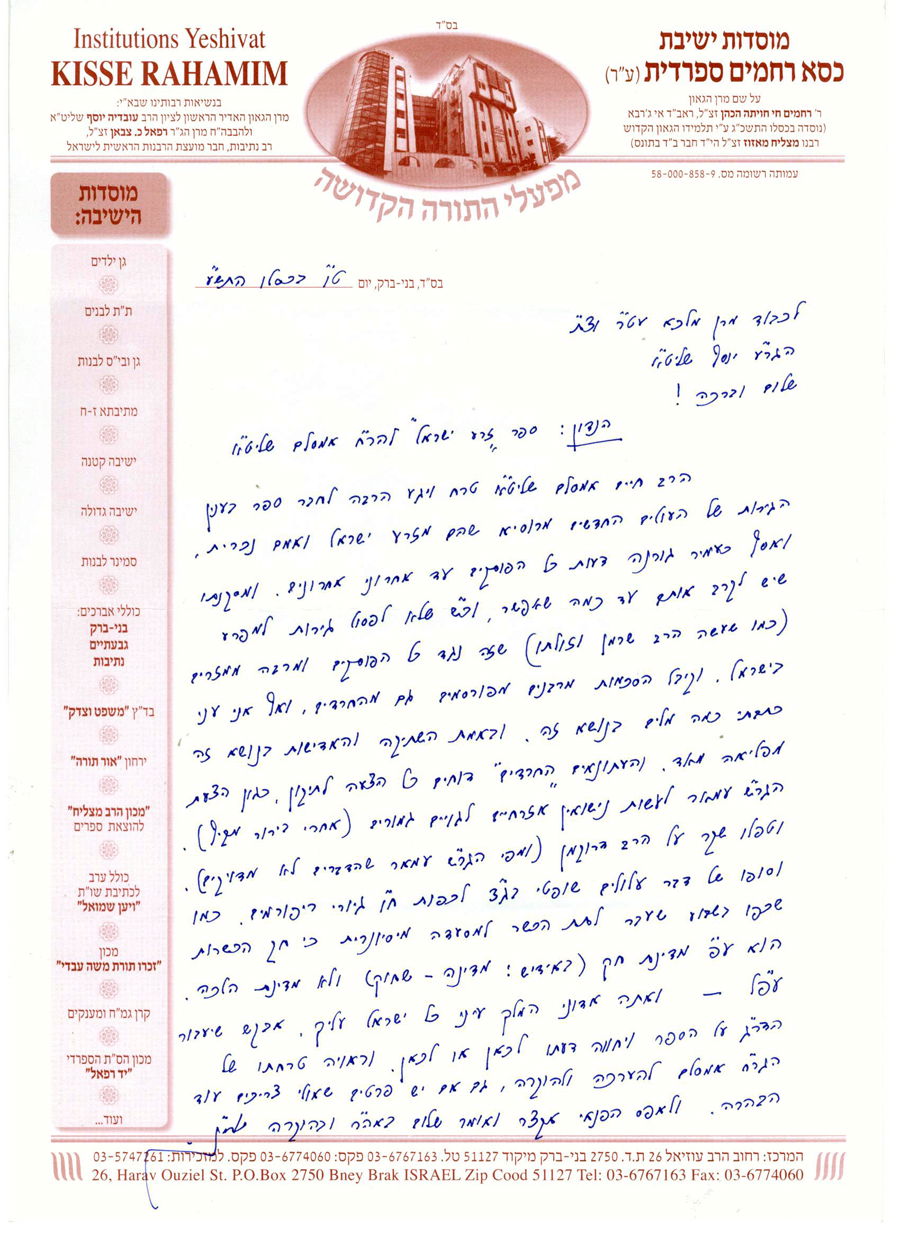 בס"ד
Institutions Yeshivat
KISSE RAHAMIM
בנשיאות רבותינו שבא"י:
מרן הגאון האדיר הראשון לציון הרב עובדיה יוסף שליט"א
ולהבבה"ח מרן הג"ר רפאל כ. צבאן זצ"ל,
רב נתיבות, חבר מועצת הרבנות הראשית לישראל
מוסדות ישיבת
כסא רחמים ספרדית (ע"ר)
על שם מרן הגאון
ר' רחמים חי חויתה הכהן זצ"ל, ראב"ד אי ג'רבא
(נוסדה בכסלו התשכ"ג ע"י תלמידו הגאון הקדוש
רבנו מצליח מאזוז זצ"ל הי"ד חבר ב"ד בתונס)
עמותה רשומה מס. 58-000-858-9
מפעלי התורה הקדושה
מוסדות
הישיבה:
גן ילדים
ת"ת לבנים
גן ובי"ס לבנות
מתיבתא ז-ח
ישיבה קטנה
ישיבה גדולה
סמינר לבנות
כוללי אברכים:
בני-ברק
גבעתיים
נתיבות
בד"ץ "משפט וצדק"
ירחון "אור תורה"
"מכון הרב מצליח"
להוצאת ספרים
כולל ערב
לכתיבת שו"ת
"ויען שמואל"
מכון
"זכרו תורת משה עבדי"
קרן גמ"ח ומענקים
מכון הס"ת הספרדי
"יד רפאל"
ועוד...
בס"ד, בני-ברק, יום ט"ו בכסלו התשע"א
לכבוד מרן מלכא עט"ר וצ"ת
הגר"ע יוסף שליט"א
שלום וברכה!
הנדון: ספר "זרע ישראל" להר"ח אמסלם שליט"א
הרב חיים אמסלם שליט"א טרח ויגע הרבה לחבר ספר בענין
הגירות של העולים החדשים מרוסיא שהם מזרע ישראל ואמם נכרית,
ואסף כעמיר גורנה דעות כל הפוסקים עד אחרוני אחרונים. ומסקנתו
שיש לקרב אותם עד כמה שאפשר, וכ"ש שלא לפסול גירות למפרע
(כמו שעשה הרב שרמן וזולתו) שזה נגד כל הפוסקים ומרבה ממזרים
בישראל. וקיבל הסכמות מרבנים מפורסמים גם מהחרדים, ואף אני עני
כתבתי כמה מלים בנושא זה. ובאמת השתיקה והאדישות בנושא זה
מפליאה מאד. והעתונאים "החרדים" דוחים כל הצעה לתיקון, כגון הצעת
הגר"ש עמאר לעשות נישואין אזרחיים לגויים גמורים (אחרי בירור מקיף).
וטפלו שקר על הרב דרוקמן (ומפי הגר"ש עמאר שהדברים לא מדויקים).
וסופו של דבר עלולים שופטי בג"צ לכפות ח"ו גיורי ריפורמים. כמו
שכפו בשבוע שעבר לתת הכשר למסעדה מיסיונרית כי חק הכשרות
הוא ע"פ מדינת חק (באידיש: מדינה - שחוק) ולא מדינת הלכה.
עכ"פ — ואתה אדוני המלך עיני כל ישראל עליך. אבקש שיעבור
הדר"ג על הספר ויחווה דעתו לכאן או לכאן. וראויה טרחתו של
הגר"ח אמסלם להערכה ולהוקרה, גם אם יש פרטים שאולי צריכים עוד
הבהרה. ולאפס הפנאי אקצר ואומר שלום באה"ר ובהוקרה
המרכז: רחוב הרב עוזיאל 26 ת.ד. 2750 בני-ברק מיקוד 51127 טל. 03-6767163 פקס: 03-6774060 פקס. למזכירות: 03-5747261
26, Harav Ouziel St. P.O.Box 2750 Bney Brak ISRAEL Zip Cood 51127 Tel: 03-6767163 Fax: 03-6774060